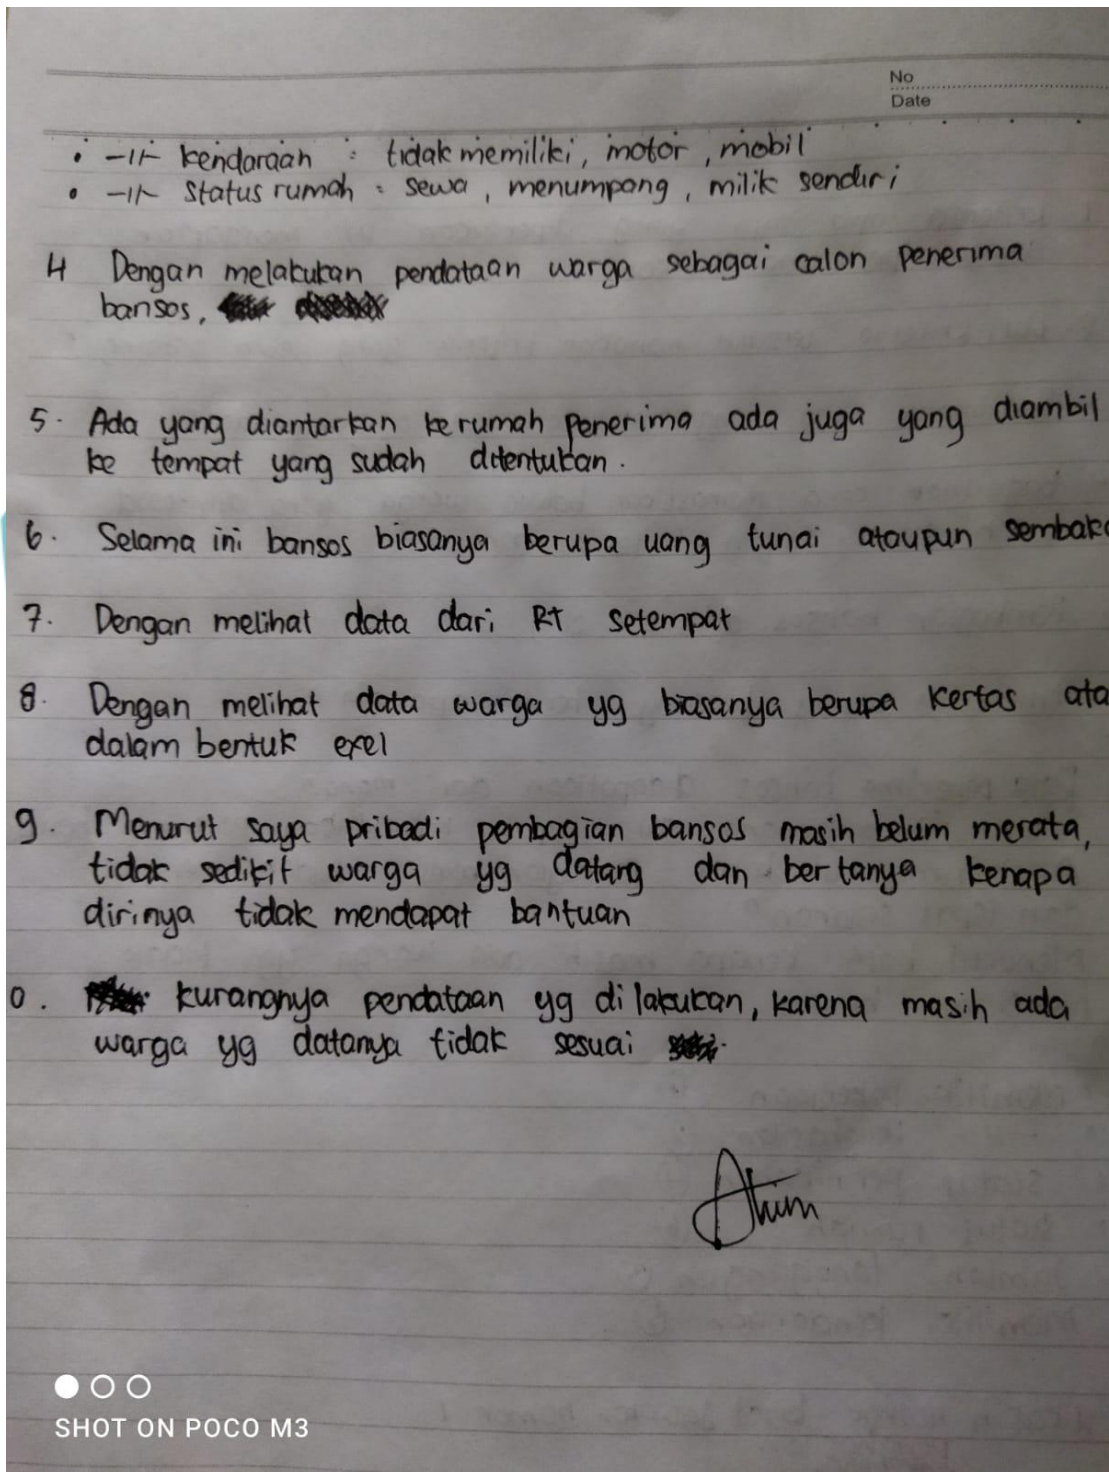 No
Date
• -11- kendaraan : tidak memiliki, motor, mobil
• -11- status rumah : sewa, menumpang, milik sendiri
4 Dengan melakukan pendataan warga sebagai calon penerima
bansos,
5. Ada yang diantarkan kerumah penerima ada juga yang diambil
ke tempat yang sudah ditentukan.
6. Selama ini bansos biasanya berupa uang tunai ataupun sembako
7. Dengan melihat data dari RT setempat
8. Dengan melihat data warga yg biasanya berupa kertas ata
dalam bentuk exel
9. Menurut saya pribadi pembagian bansos masih belum merata,
tidak sedikit warga yg datang dan bertanya kenapa
dirinya tidak mendapat bantuan
0. kurangnya pendataan yg dilakukan, karena masih ada
warga yg datanya tidak sesuai
SHOT ON POCO M3